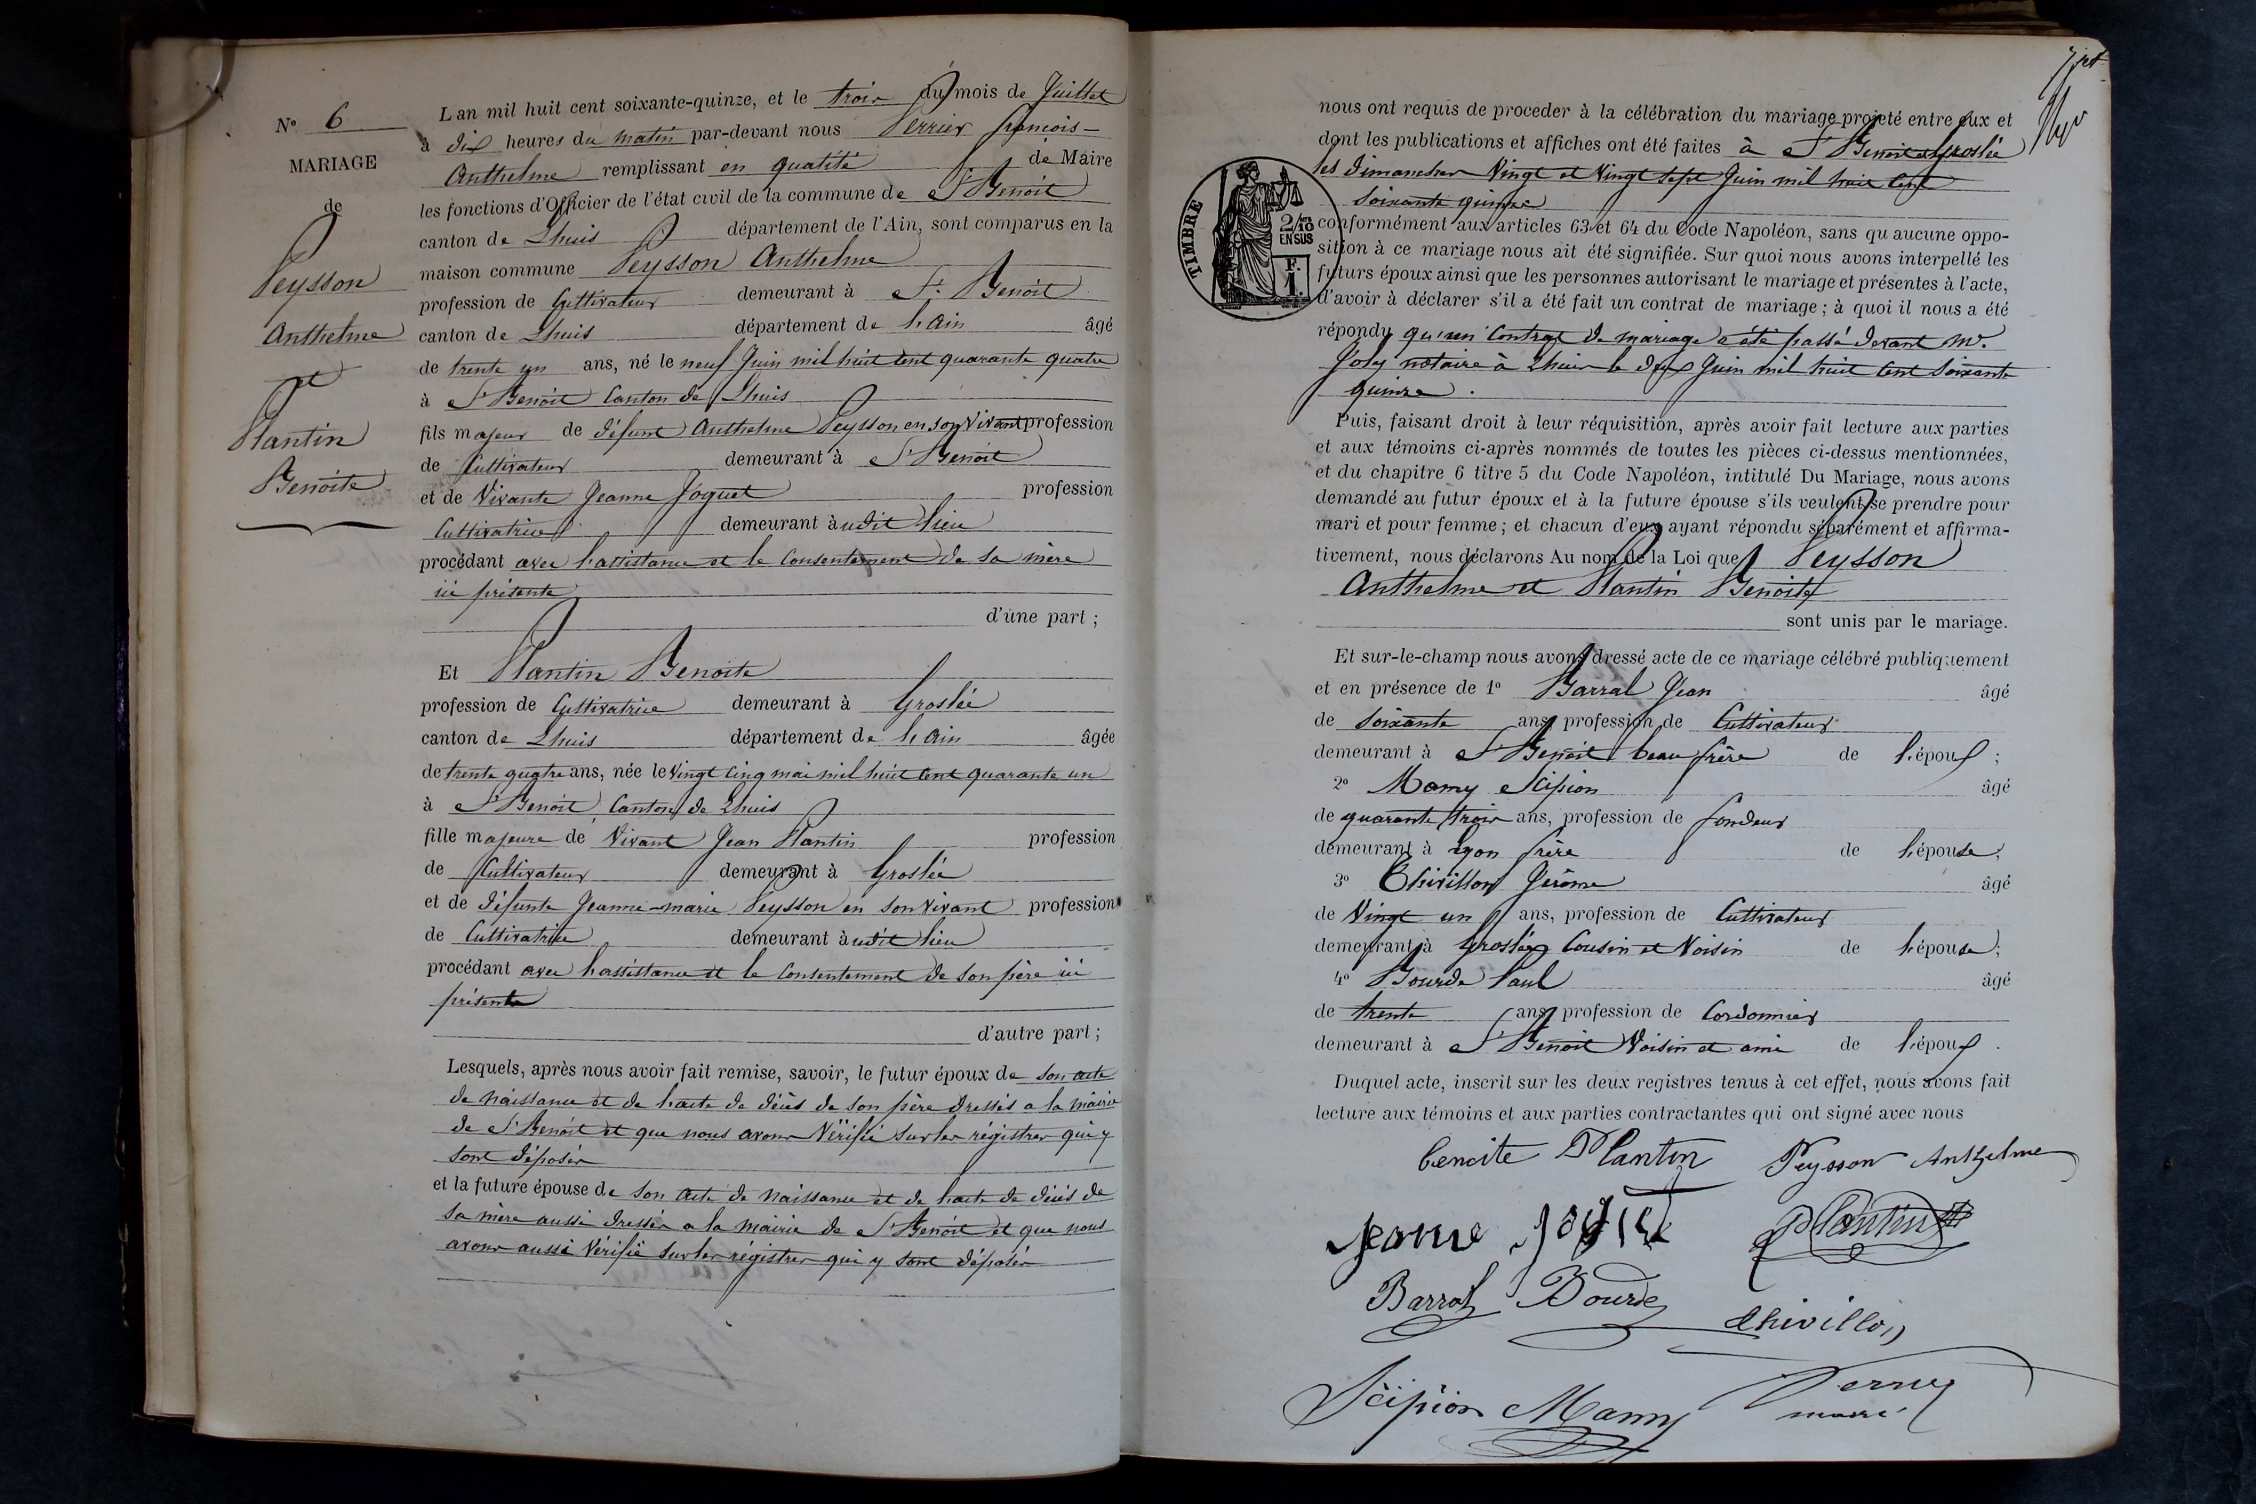 N° 6
MARIAGE
de
Peysson
Anthelme
et
Plantin
Benoite
L'an mil huit cent soixante-quinze, et le trois du mois de Juillet
à dix heures du matin par-devant nous Perrier françois-
Anthelme remplissant en qualité de Maire
les fonctions d'Officier de l'état civil de la commune de St Benoit
canton de Lhuis département de l'Ain, sont comparus en la
maison commune Peysson Anthelme
profession de Cultivateur demeurant à St Benoit
canton de Lhuis département de l'ain âgé
de trente un ans, né le neuf Juin mil huit cent quarante quatre
à St Benoit Canton de Lhuis
fils majeur de défunt Anthelme Peysson en son vivant profession
de Cultivateur demeurant à St Benoit
et de Vivante Jeanne Joguet profession
Cultivatrice demeurant à udit lieu
procédant avec l'assistance et le Consentement de sa mère
ici présente
d'une part ;
Et Plantin Benoite
profession de Cultivatrice demeurant à Groslée
canton de Lhuis département de l'ain âgée
de trente quatre ans, née le Vingt cinq mai mil huit cent quarante un
à St Benoit, Canton de Lhuis
fille majeure de Vivant Jean Plantin profession
de Cultivateur demeurant à Groslée
et de défunte Jeanne-marie Peysson en son vivant profession
de Cultivatrice demeurant à udit lieu
procédant avec l'assistance et le Consentement de son père ici
présente
d'autre part ;
Lesquels, après nous avoir fait remise, savoir, le futur époux de son acte
de Naissance et de l'acte de décès de son père dressés a la mairie
de St Benoit et que nous avons Vérifié sur les régistres qui y
sont déposés
et la future épouse de son acte de Naissance et de l'acte de décès de
sa mère aussi dressés a la mairie de St Benoit et que nous
avons aussi Vérifié sur les régistres qui y sont déposés
nous ont requis de proceder à la célébration du mariage projeté entre eux et
dont les publications et affiches ont été faites à St Benoit et Groslée
les dimanches Vingt et Vingt sept Juin mil huit cent
soixante quinze
TIMBRE
2/10
EN SUS
F.
1.
conformément aux articles 63 et 64 du Code Napoléon, sans qu'aucune oppo-
sition à ce mariage nous ait été signifiée. Sur quoi nous avons interpellé les
futurs époux ainsi que les personnes autorisant le mariage et présentes à l'acte,
d'avoir à déclarer s'il a été fait un contrat de mariage ; à quoi il nous a été
répondu qu'un Contrat de mariage a été passé devant Me.
Joly notaire à Lhuis le dix Juin mil huit cent soixante
quinze.
Puis, faisant droit à leur réquisition, après avoir fait lecture aux parties
et aux témoins ci-après nommés de toutes les pièces ci-dessus mentionnées,
et du chapitre 6 titre 5 du Code Napoléon, intitulé Du Mariage, nous avons
demandé au futur époux et à la future épouse s'ils veulent se prendre pour
mari et pour femme ; et chacun d'eux ayant répondu séparément et affirma-
tivement, nous déclarons Au nom de la Loi que Peysson
Anthelme et Plantin Benoite
sont unis par le mariage.
Et sur-le-champ nous avons dressé acte de ce mariage célébré publiquement
et en présence de 1° Barral Jean âgé
de soixante ans, profession de Cultivateur
demeurant à St Benoit beau frère de l'époux ;
2° Mamy Scipion âgé
de quarante trois ans, profession de fondeur
demeurant à Lyon frère de l'épouse ;
3° Chivillon Jérôme âgé
de Vingt un ans, profession de Cultivateur
demeurant à Groslée Cousin et Voisin de l'épouse ;
4° Bourde Paul âgé
de trente ans, profession de Cordonnier
demeurant à St Benoit Voisin et ami de l'époux.
Duquel acte, inscrit sur les deux registres tenus à cet effet, nous avons fait
lecture aux témoins et aux parties contractantes qui ont signé avec nous
benoite Plantin Peysson Anthelme
jeanne joguet Plantin
Barral Bourde Chivillon
Scipion Mamy Perrier
maire